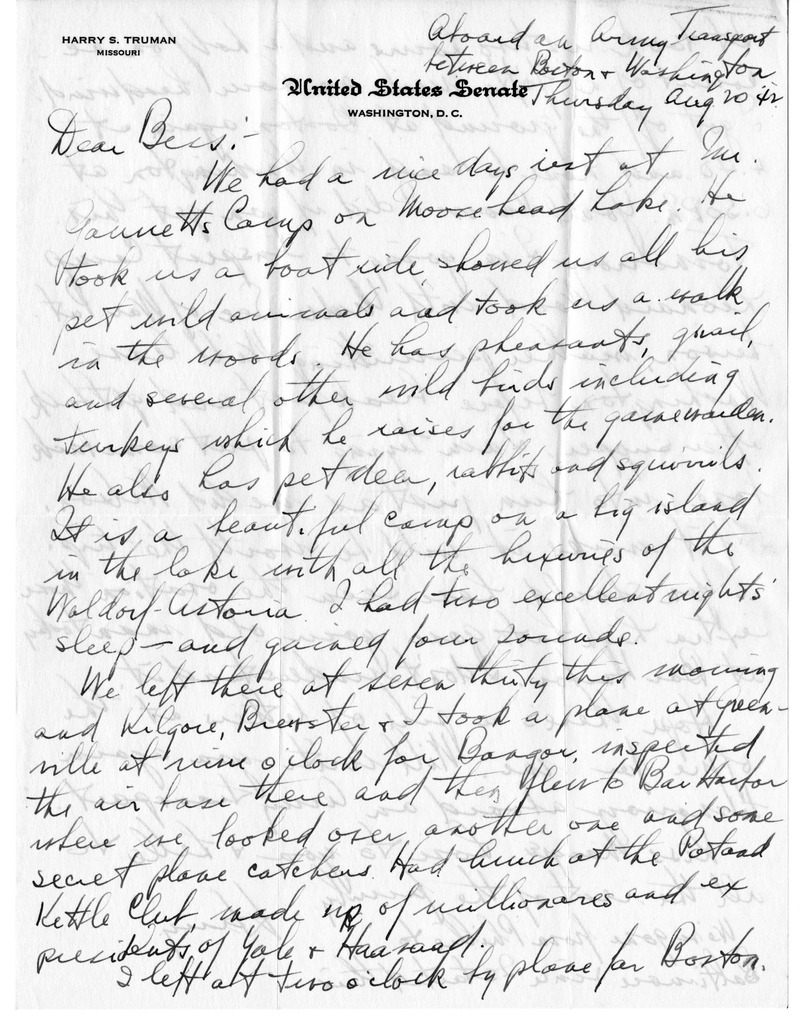 HARRY S. TRUMAN
MISSOURI
Aboard an Army Transport
between Boston & Washington
United States Senate
Thursday Aug 20 42
WASHINGTON, D. C.
Dear Bess:-
We had a nice days rest at Mr.
Gannetts Camp on Moosehead Lake. He
took us a boat ride, showed us all his
pet wild animals and took us a walk
in the woods. He has pheasants, quail,
and several other wild birds including
turkeys which he raises for the gamewarden.
He also has pet deer, rabbits and squirrils.
It is a beautiful camp on a big island
in the lake with all the luxuries of the
Waldorf-Astoria. I had two excellent nights'
sleep—and gained four pounds.
We left there at seven thirty this morning
and Kilgore, Brewster & I took a plane at Green-
ville at nine oclock for Bangor, inspected
the air base there and then flew to Bar Harbor
where we looked over another one and some
secret plane catchers. Had lunch at the Pot and
Kettle Club, made up of millionares and ex
presidents of Yale & Haavaad.
I left at two o'clock by plane for Boston.